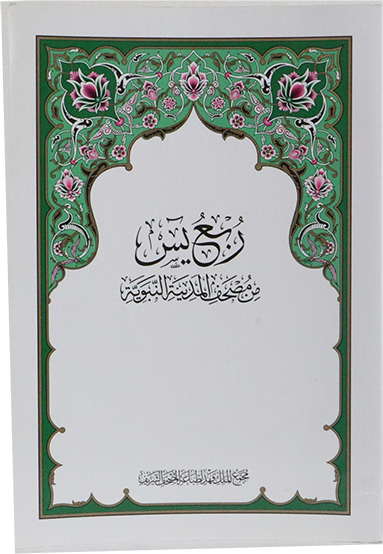 رُبْعُ يٓسٓ
مِن مُصْحَفِ المَدِينَةِ النَّبَوِيَّةِ
مجمع الملك فهد لطباعة المصحف الشريف